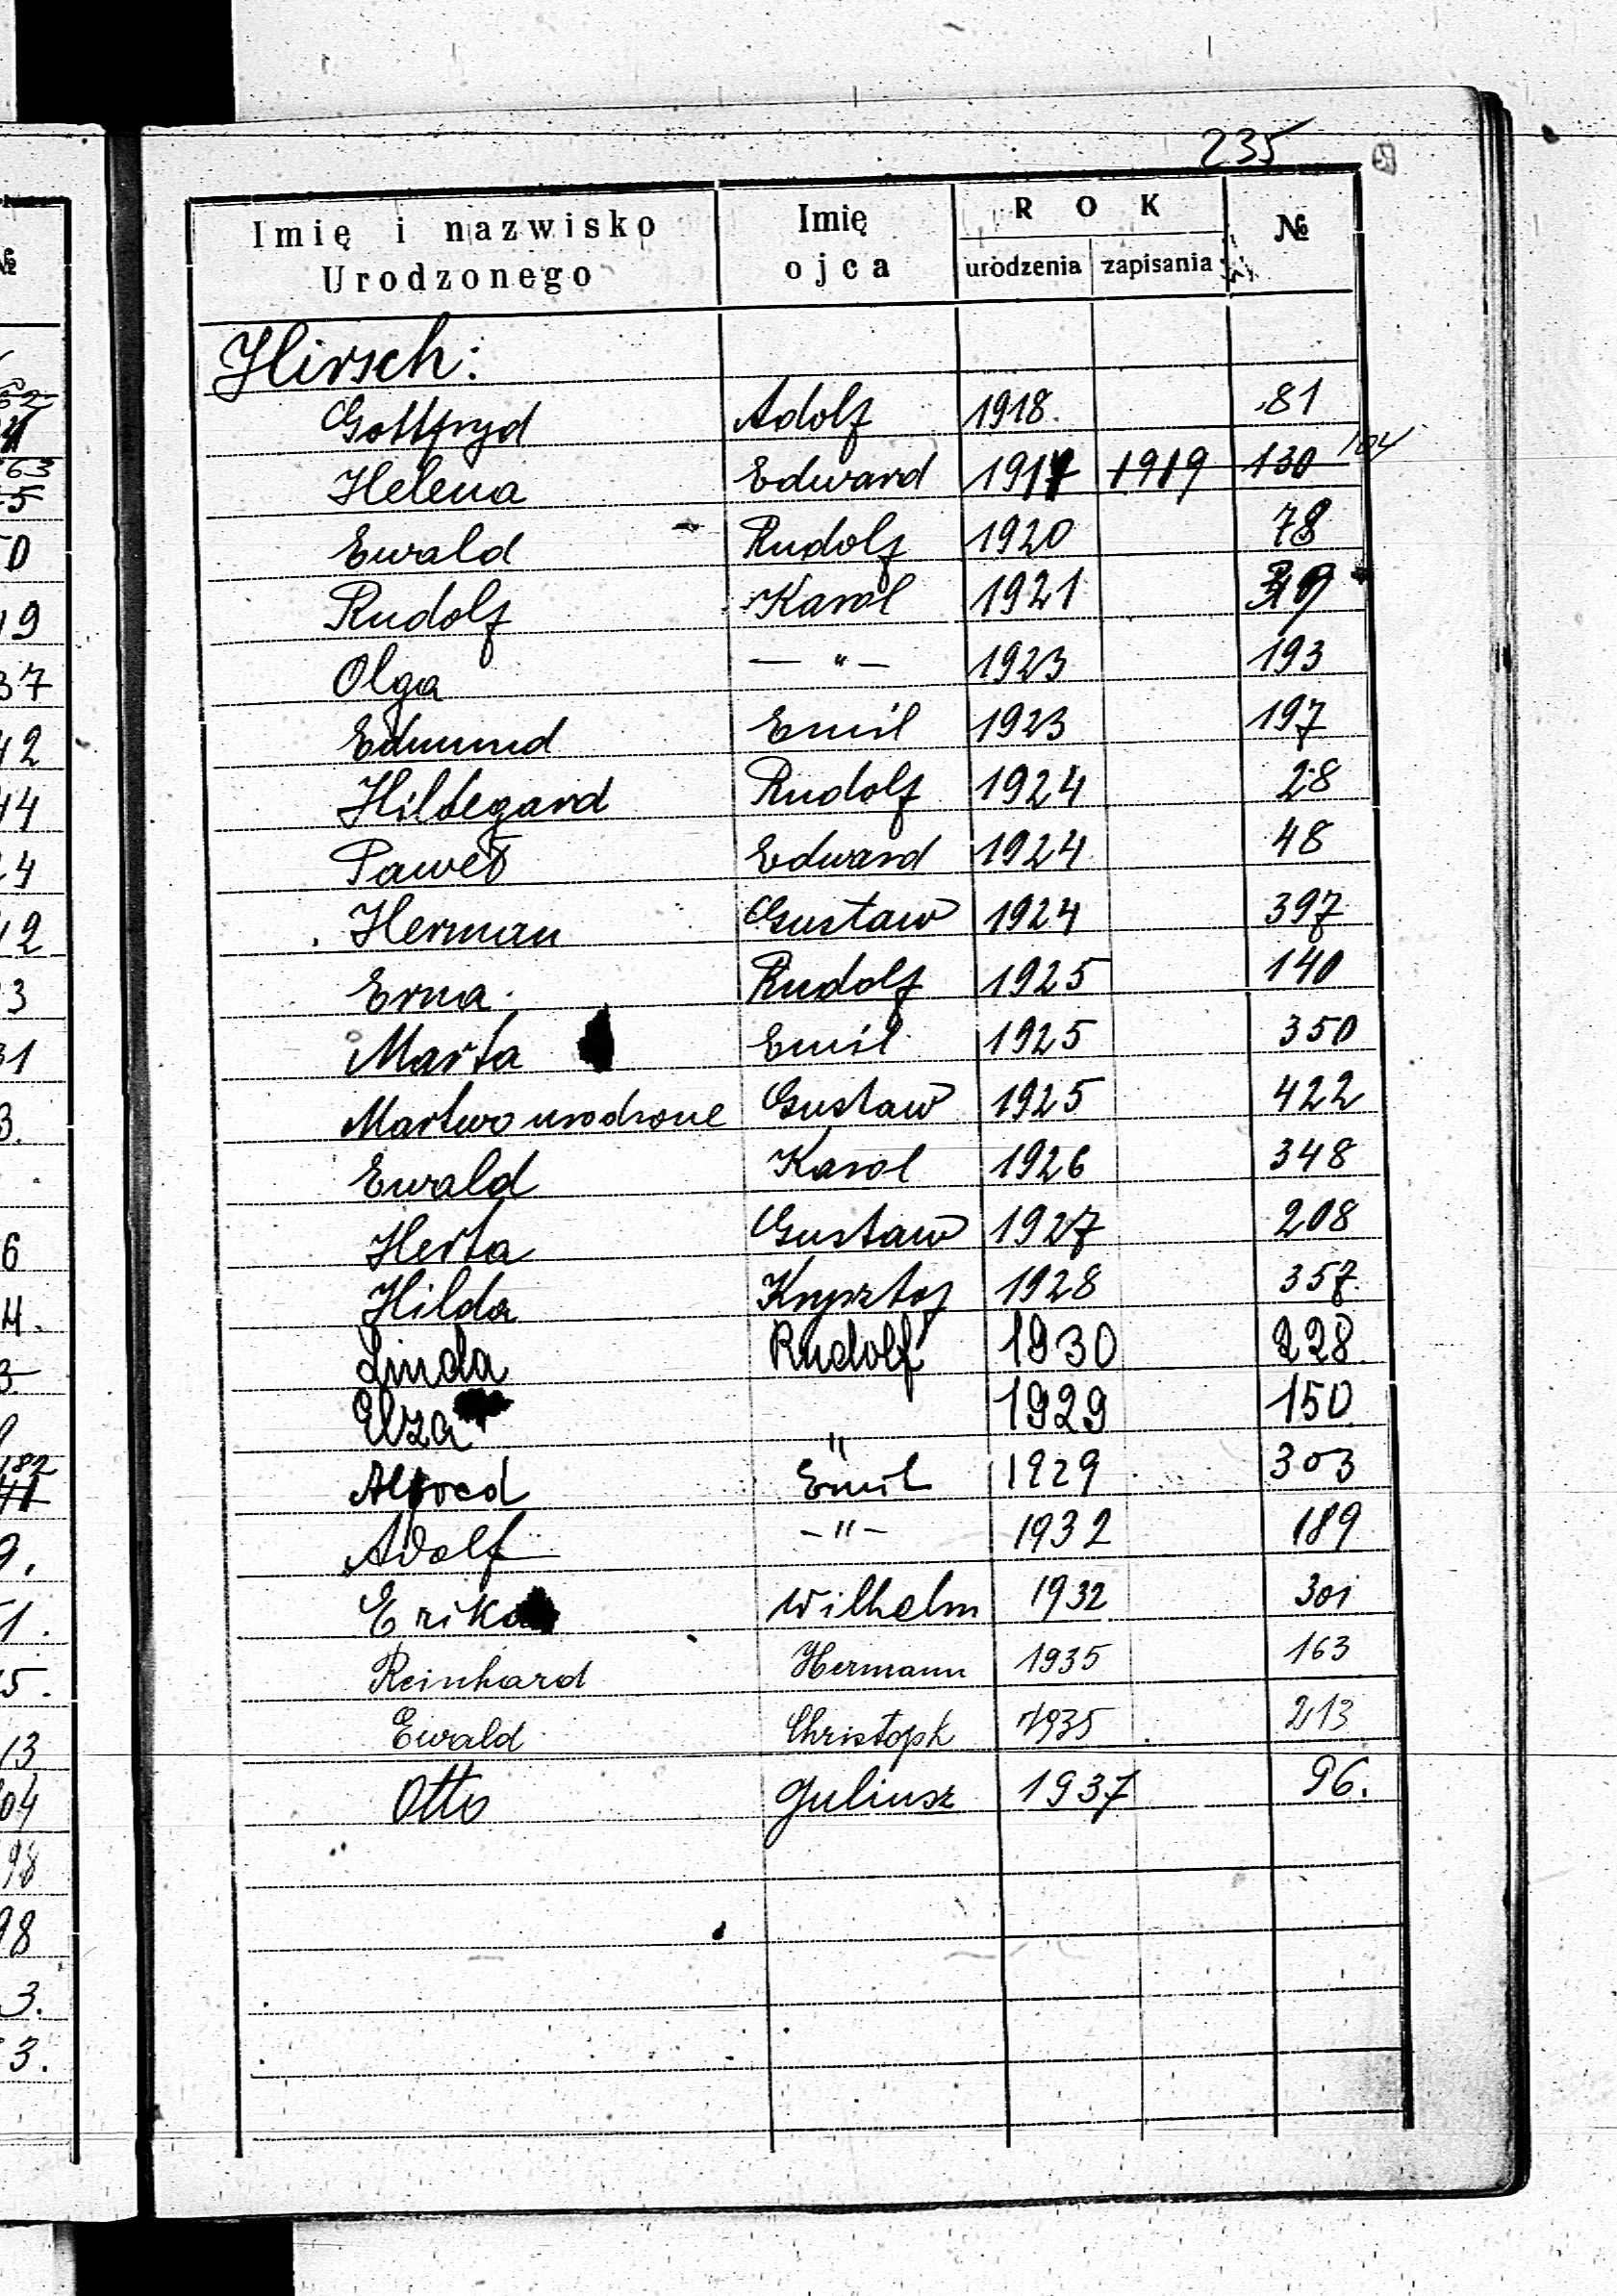 235
Imię i nazwisko Urodzonego Imię ojca ROK urodzenia zapisania №
Hirsch:
Gottfryd Adolf 1918. 81
Helena Edward 1917 1919 130 104
Ewald Rudolf 1920 78
Rudolf Karol 1921
Olga — " — 1923 193
Edmund Emil 1923 197
Hildegard Rudolf 1924 28
Paweł Edward 1924 48
Herman Gustaw 1924 397
Erna Rudolf 1925 140
Marta Emil 1925 350
Martwo urodzone Gustaw 1925 422
Ewald Karol 1926 348
Herta Gustaw 1927 208
Hilda Krysztof 1928 357.
Linda Rudolf 1930 228.
Elza " 1929 150
Alfred Emil 1929 303
Adolf — " — 1932 189
Erika Wilhelm 1932 301
Reinhard Hermann 1935 163
Ewald Christoph 1935 213
Otto Juliusz 1937 96.